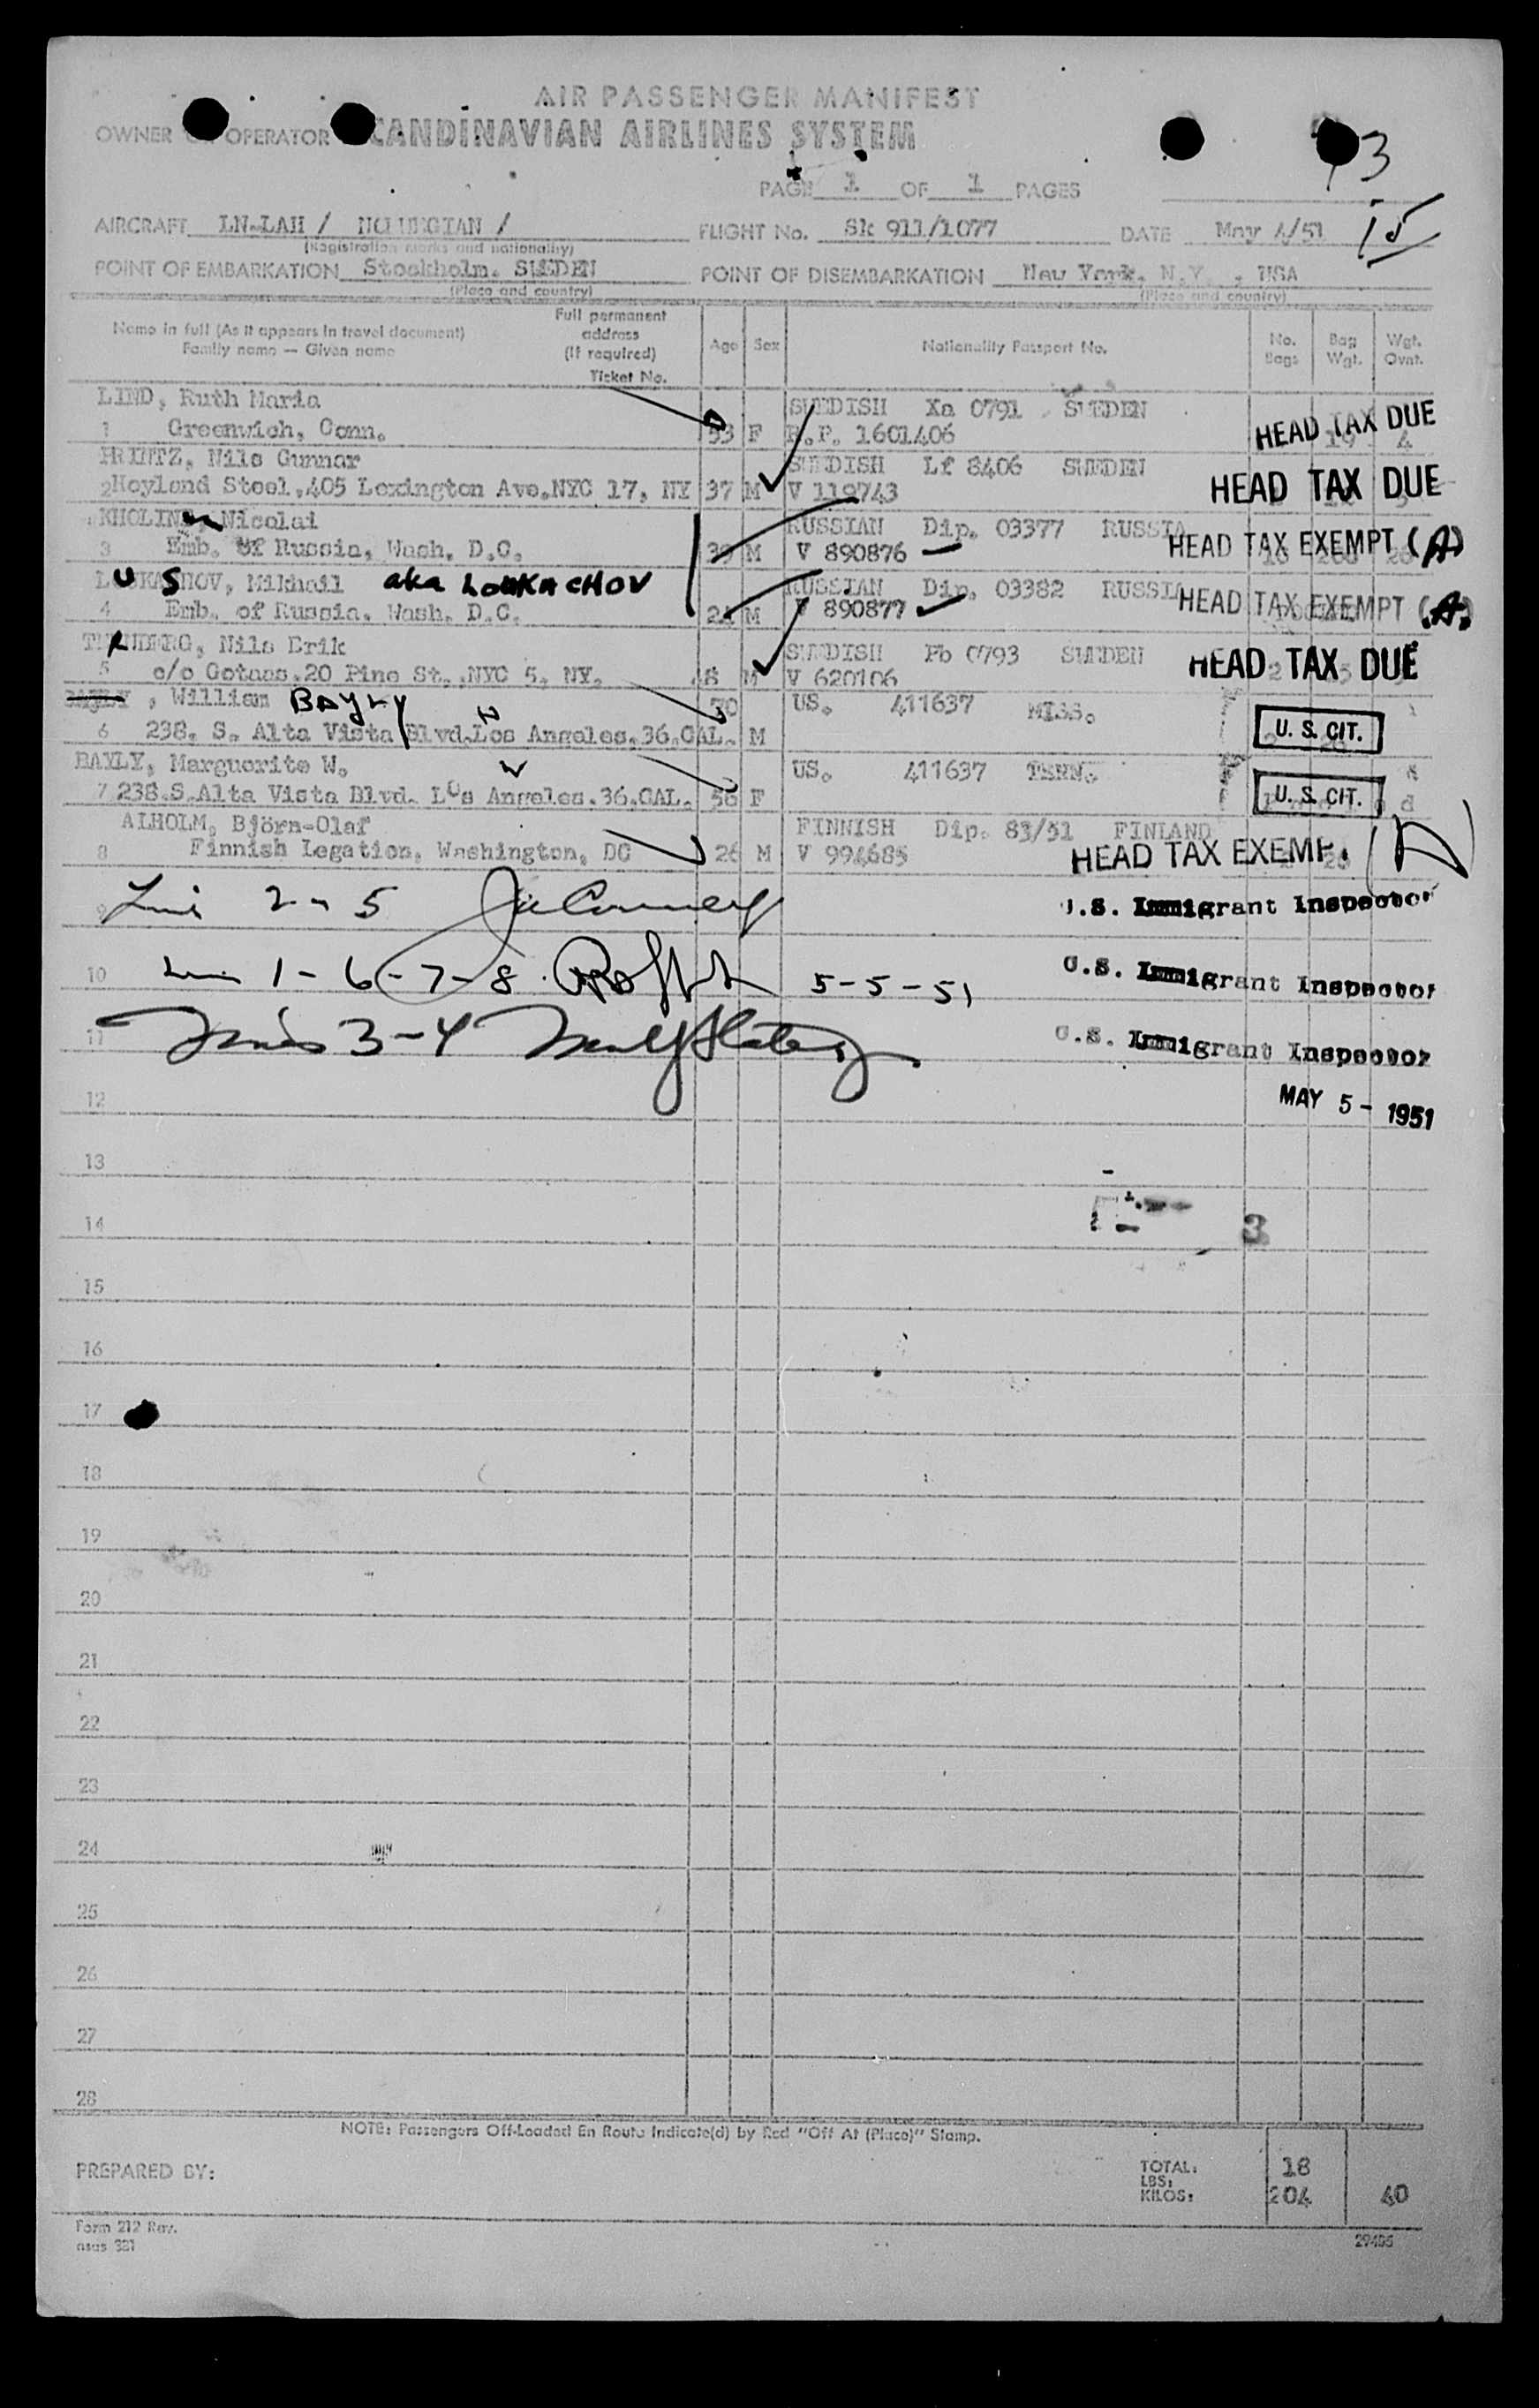 AIR PASSENGER MANIFEST
OWNER OPERATOR CANDINAVIAN AIRLINES SYSTEM
3
PAGE 1 OF 1 PAGES
AIRCRAFT LN-LAH / NORWEGIAN / FLIGHT No. SK 911/1077 DATE May 4/51 15
(Registration marks and nationality)
POINT OF EMBARKATION Stockholm. SWEDEN POINT OF DISEMBARKATION New York, N.Y. , USA
(Place and country) (Place and country)
Name in full (As it appears in travel document) Full permanent address (If required) Age Sex Nationality Passport No. No. Bags Bag Wgt. Wgt. Ovnt.
Family name — Given name Ticket No.
LIND, Ruth Maria SWEDISH Xa 0791 SWEDEN HEAD TAX DUE
1 Greenwich, Conn. 53 F R.P. 1601406 19 4
PRINTZ, Nils Gunnar SWEDISH Lf 8406 SWEDEN HEAD TAX DUE
2 Hoyland Steel,405 Lexington Ave.NYC 17, NY 37 M V 119743
KHOLIN, Nicolai RUSSIAN Dip. 03377 RUSSIA HEAD TAX EXEMPT (A)
3 Emb. of Russia, Wash. D.C. 39 M V 890876
LUKASHOV, Mikhail aka LOUKACHOV RUSSIAN Dip. 03382 RUSSIA HEAD TAX EXEMPT (A)
4 Emb. of Russia. Wash. D.C. 24 M V 890877
Nils Erik SWEDISH Fb 0793 SWEDEN HEAD TAX DUE
5 c/o Gotaas.20 Pine St..NYC 5, NY. 48 M V 620106
BAYLY , William BAYLY 70 US. 411637 MISS. U. S. CIT.
6 238. S. Alta Vista Blvd.Los Angeles.36.CAL. M
BAYLY, Marguerite W. US. 411637 TENN. U. S. CIT.
7 238.S.Alta Vista Blvd. Los Angeles.36.CAL. 56 F
ALHOLM, Björn-Olaf FINNISH Dip. 83/51 FINLAND HEAD TAX EXEMP. (A)
8 Finnish Legation, Washington, DC 26 M V 994685
9 2-5 U.S. Immigrant Inspector
10 1-6-7-8 5-5-51 U.S. Immigrant Inspector
11 Lines 3-4 U.S. Immigrant Inspector
12 MAY 5 - 1951
13
14 3
15
16
17
18
19
20
21
22
23
24
25
26
27
28
NOTE: Passengers Off-Loaded En Route Indicate(d) by Red "Off At (Place)" Stamp.
PREPARED BY: TOTAL: 18
LBS:
KILOS: 204 40
Form 212 Rev.
29485